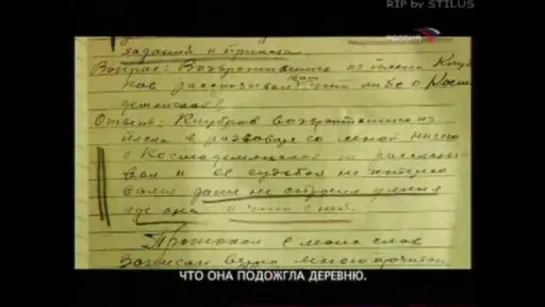 RIP by STILUS
РОССИЯ
задания и приказа
Вопрос: Возвратившись из плена Клуб
ков рассказывал вам что либо о Косм
демьянской?
Ответ: Клубков возвратившись из
плена в разговоре со мной ничего
о Космодемьянской не рассказы
вал и ее судьбой не интересо
вался даже не спросил у меня
где она и что с ней.
Протокол с моих слов
записан верно мною прочитан
ЧТО ОНА ПОДОЖГЛА ДЕРЕВНЮ.